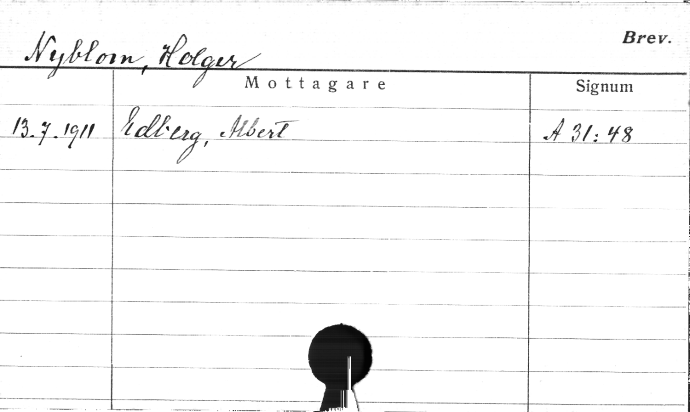 Brev.
Nyblom, Holger
Mottagare Signum
13.7.1911 Edberg, Albert A 31:48